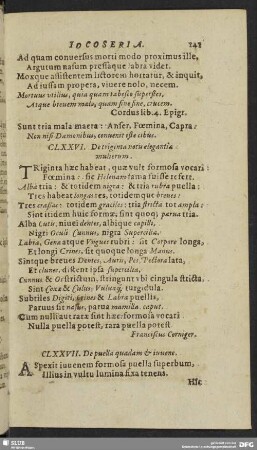 IOCOSERIA. 141
Ad quam conversus morti modo proximus ille,
Argutum nasum pressaque labra videt.
Moxque assistentem lictorem hortatur, & inquit,
Ad iussam propera, vivere nolo, necem.
Mortuus vilius, quia quam tabesco superstes,
Atque brevem malo, quam sine fine, crucem.
Cordus lib. 4. Epigr.
Sunt tria mala maera: Anser, Fœmina, Capra:
Non nisi Dæmonibus, convenit esse cibus.
CLXXVI. De triginta notis elegantiæ
mulierum.
TRiginta hæc habeat, quæ vult formosa vocari
Fœmina: sic Helenam fama fuisse refert.
Alba tria: & totidem nigra: & tria rubra puella:
Tres habeat longas res, totidemque breves:
Tres crassas: totidem graciles: tria stricta tot ampla:
Sint itidem huic formæ, sint quoque parva tria.
Alba Cutis, nivei dentes, albique capilli,
Nigri Oculi Cunnus, nigra Supercilia.
Labra, Genæ atque Vngues rubri: sit Corpore longa,
Et longi Crines, sit quoque longa Manus.
Sintque breves Dentes, Auris, Pes, Pectora lata,
Et clunes, distent ipsa supercilia,
Cunnus & Os strictum, stringunt ubi cingula stricta.
Sint Coxæ & Culus, Vulvaque turgidula.
Subtiles Digiti, crines & Labra puellis,
Parvus sit nasus, parva mamilla, caput.
Cum nullæ aut raræ sint hæc: formosa vocari
Nulla puella potest, rara puella potest.
Franciscus Corniger.
CLXXVII. De puella quadam & iuvene.
ASpexit iuvenem formosa puella superbum,
Illius in vultu lumina fixa tenens.
Hîc
SLUB